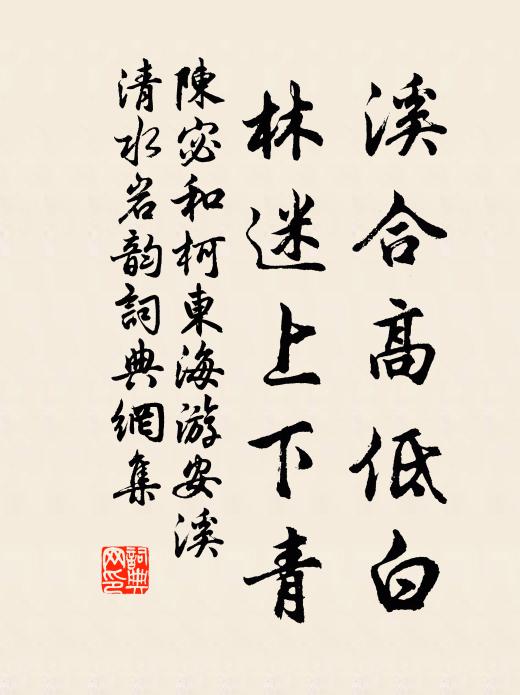 溪合高低白
林迷上下青
陳宓和柯東海游安溪
清水岩韵詞典網集
詞典网印